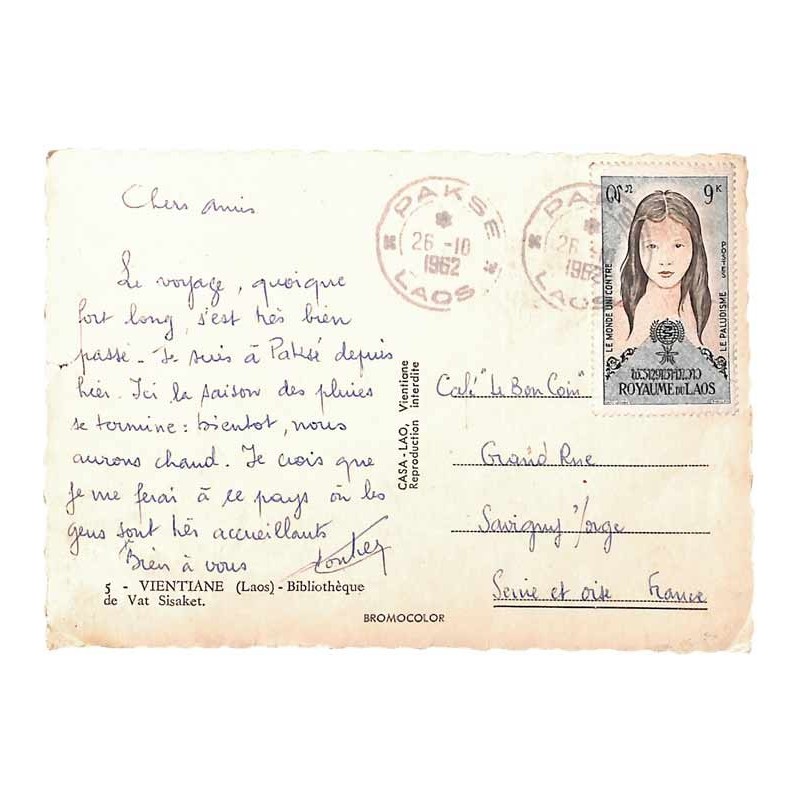 Chers amis
Le voyage, quoique
fort long, s'est très bien
passé - Je suis à Paksé depuis
hier. Ici la saison des pluies
se termine : bientot, nous
aurons chaud. Je crois que
je me ferai à ce pays où les
gens sont très accueillants
Bien à vous
5 - VIENTIANE (Laos) - Bibliothèque
de Vat Sisaket.
CASA - LAO, Vientiane
Reproduction interdite
BROMOCOLOR
PAKSE
26 -10
1962
LAOS
PAKSE
26 -10
1962
LAOS
9 K
POSTES
LE MONDE UNI CONTRE
LE PALUDISME
ROYAUME DU LAOS
Café "Le Bon Coin"
Grand Rue
Savigny s/orge
Seine et oise France